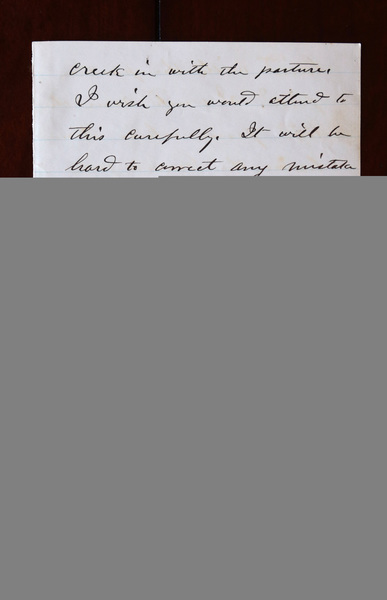 creek in with the pasture.
I wish you would attend to
this carefully. It will be
hard to correct any mistake